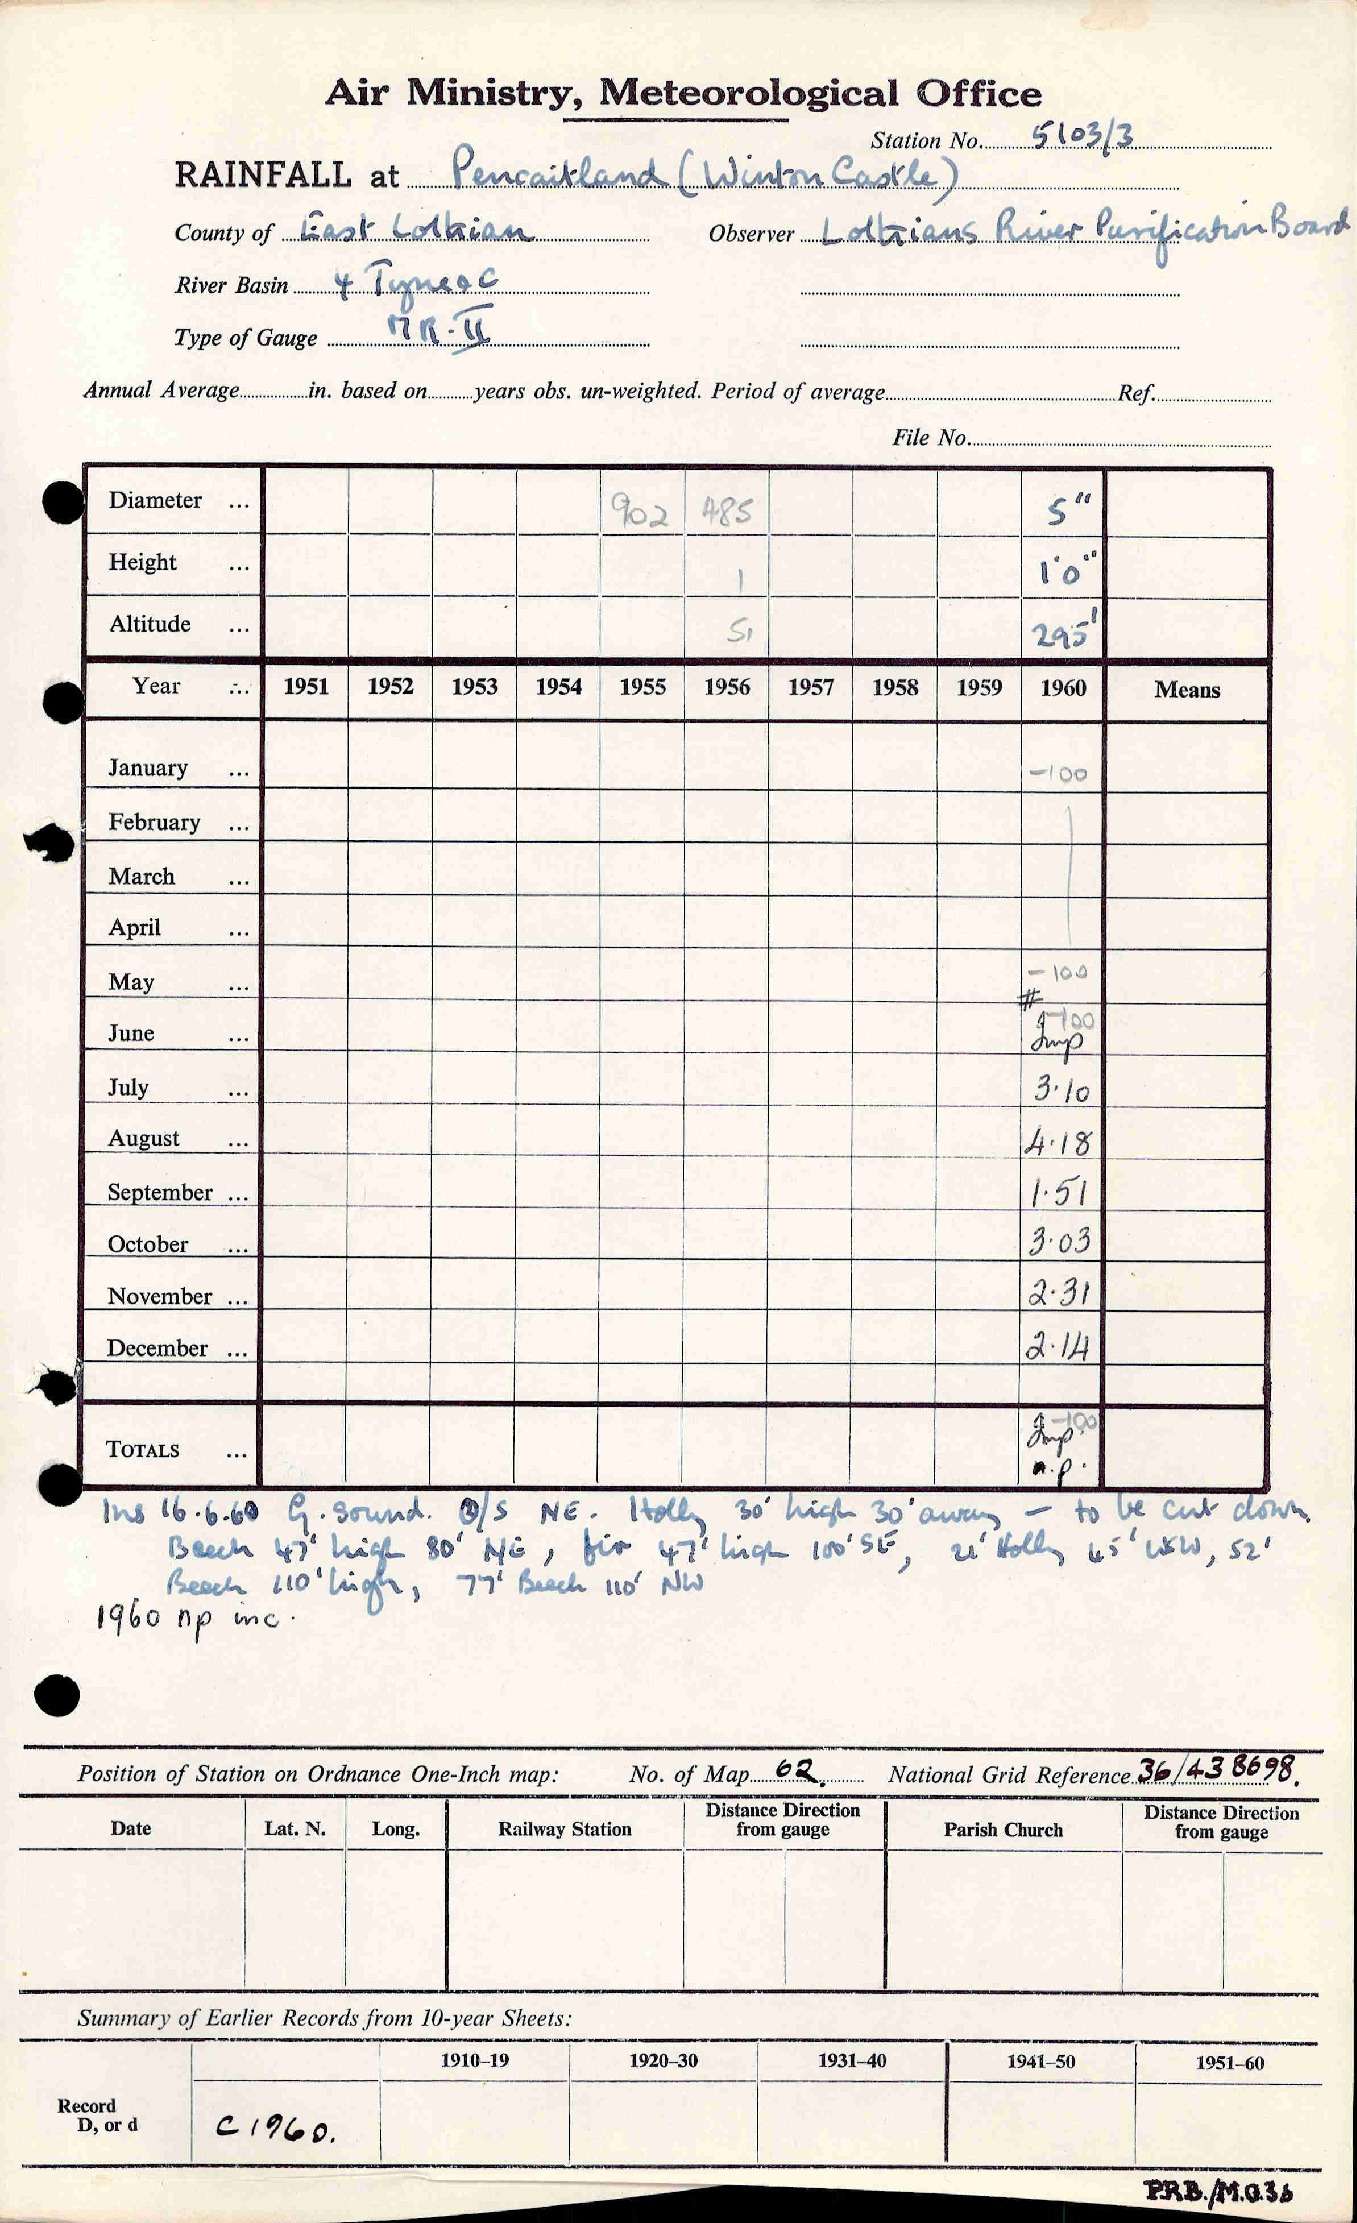 Air Ministry, Meteorological Office
Station No. 5103/3
RAINFALL at Pencaitland (Winton Castle)
County of East Lothian Observer Lothians River Purification Board
River Basin 4 Tyne & C
Type of Gauge MR-II
Annual Average in. based on years obs. un-weighted. Period of average Ref.
File No.
Diameter ... 902 485 5"
Height ... 1 1'0"
Altitude ... 51 295'
Year ... 1951 1952 1953 1954 1955 1956 1957 1958 1959 1960 Means
January ... -100
February ...
March ...
April ...
May ... -100
#
June ... -100
Imp
July ... 3.10
August ... 4.18
September ... 1.51
October ... 3.03
November ... 2.31
December ... 2.14
TOTALS ... -100
Imp.
n.p.
Ins 16.6.60 G. sound. O/S NE. Holly 30' high 30' away - to be cut down
Beech 47' high 80' NE, fir 47' high 100' SE, 21' Holly 45' WSW, 52'
Beech 110' high, 77' Beech 110' NW
1960 np inc.
Position of Station on Ordnance One-Inch map: No. of Map 62. National Grid Reference 36/438698.
Date Lat. N. Long. Railway Station Distance Direction from gauge Parish Church Distance Direction from gauge
Summary of Earlier Records from 10-year Sheets:
1910-19 1920-30 1931-40 1941-50 1951-60
Record
D, or d C1960.
P.R.B./M.O.3b